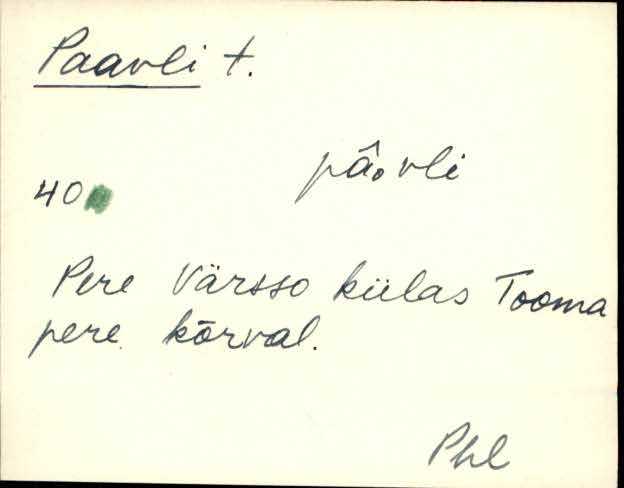 Paavli t.
pâ͔vli
40
Pere Värsso külas Tooma
pere kõrval.
Phl